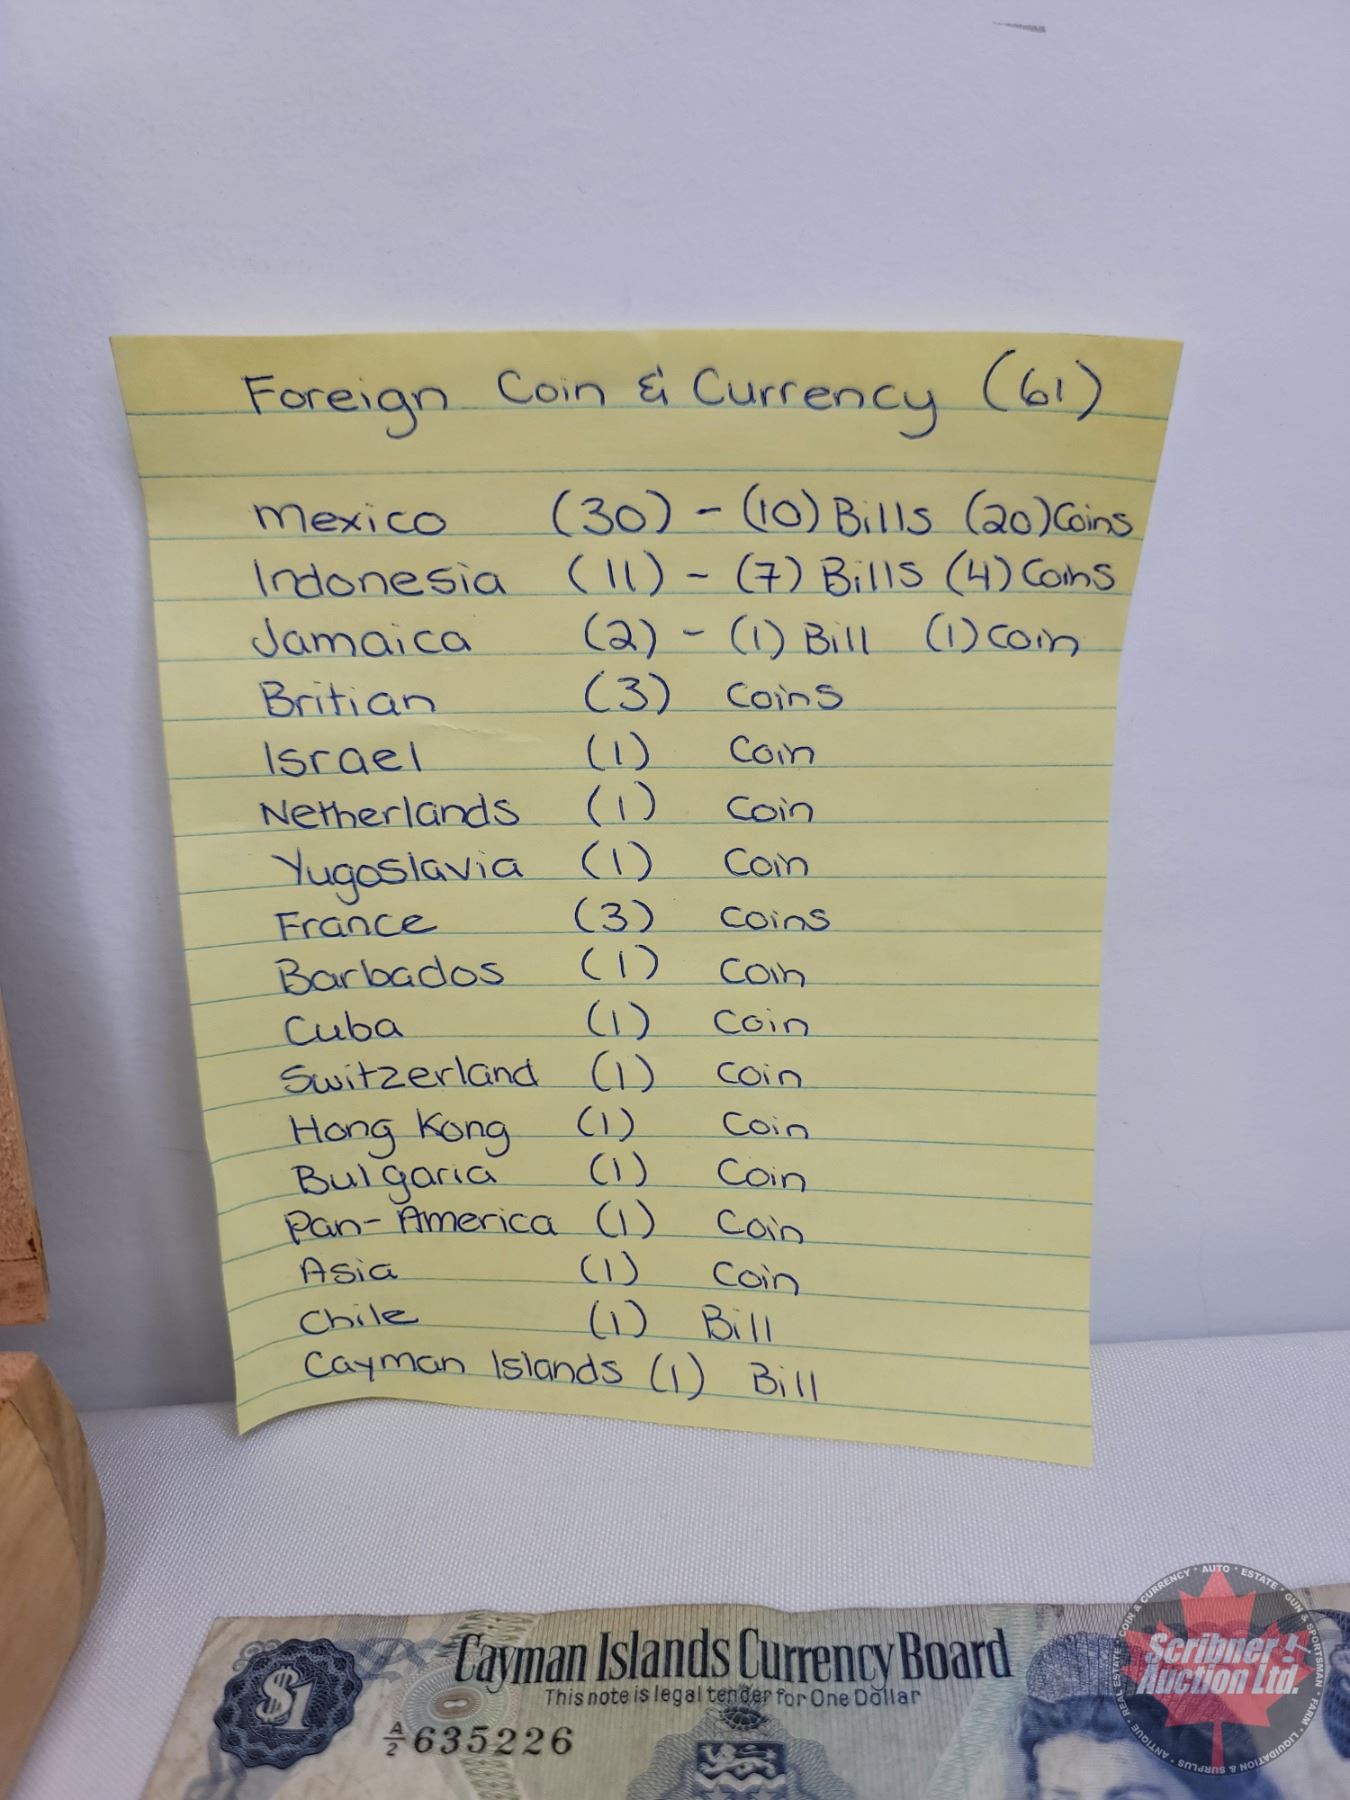 Foreign Coin & Currency (61)
Mexico (30) - (10) Bills (20) Coins
Indonesia (11) - (7) Bills (4) Coins
Jamaica (2) - (1) Bill (1) Coin
Britian (3) Coins
Israel (1) Coin
Netherlands (1) Coin
Yugoslavia (1) Coin
France (3) Coins
Barbados (1) Coin
Cuba (1) Coin
Switzerland (1) Coin
Hong Kong (1) Coin
Bulgaria (1) Coin
Pan-America (1) Coin
Asia (1) Coin
Chile (1) Bill
Cayman Islands (1) Bill
Cayman Islands Currency Board
This note is legal tender for One Dollar
$1
A/2 635226
Scribner
Auction Ltd.
COIN & CURRENCY • AUTO • ESTATE • GUN & SPORTSMAN • FARM • LIQUIDATION & SURPLUS • ANTIQUE • REAL ESTATE •